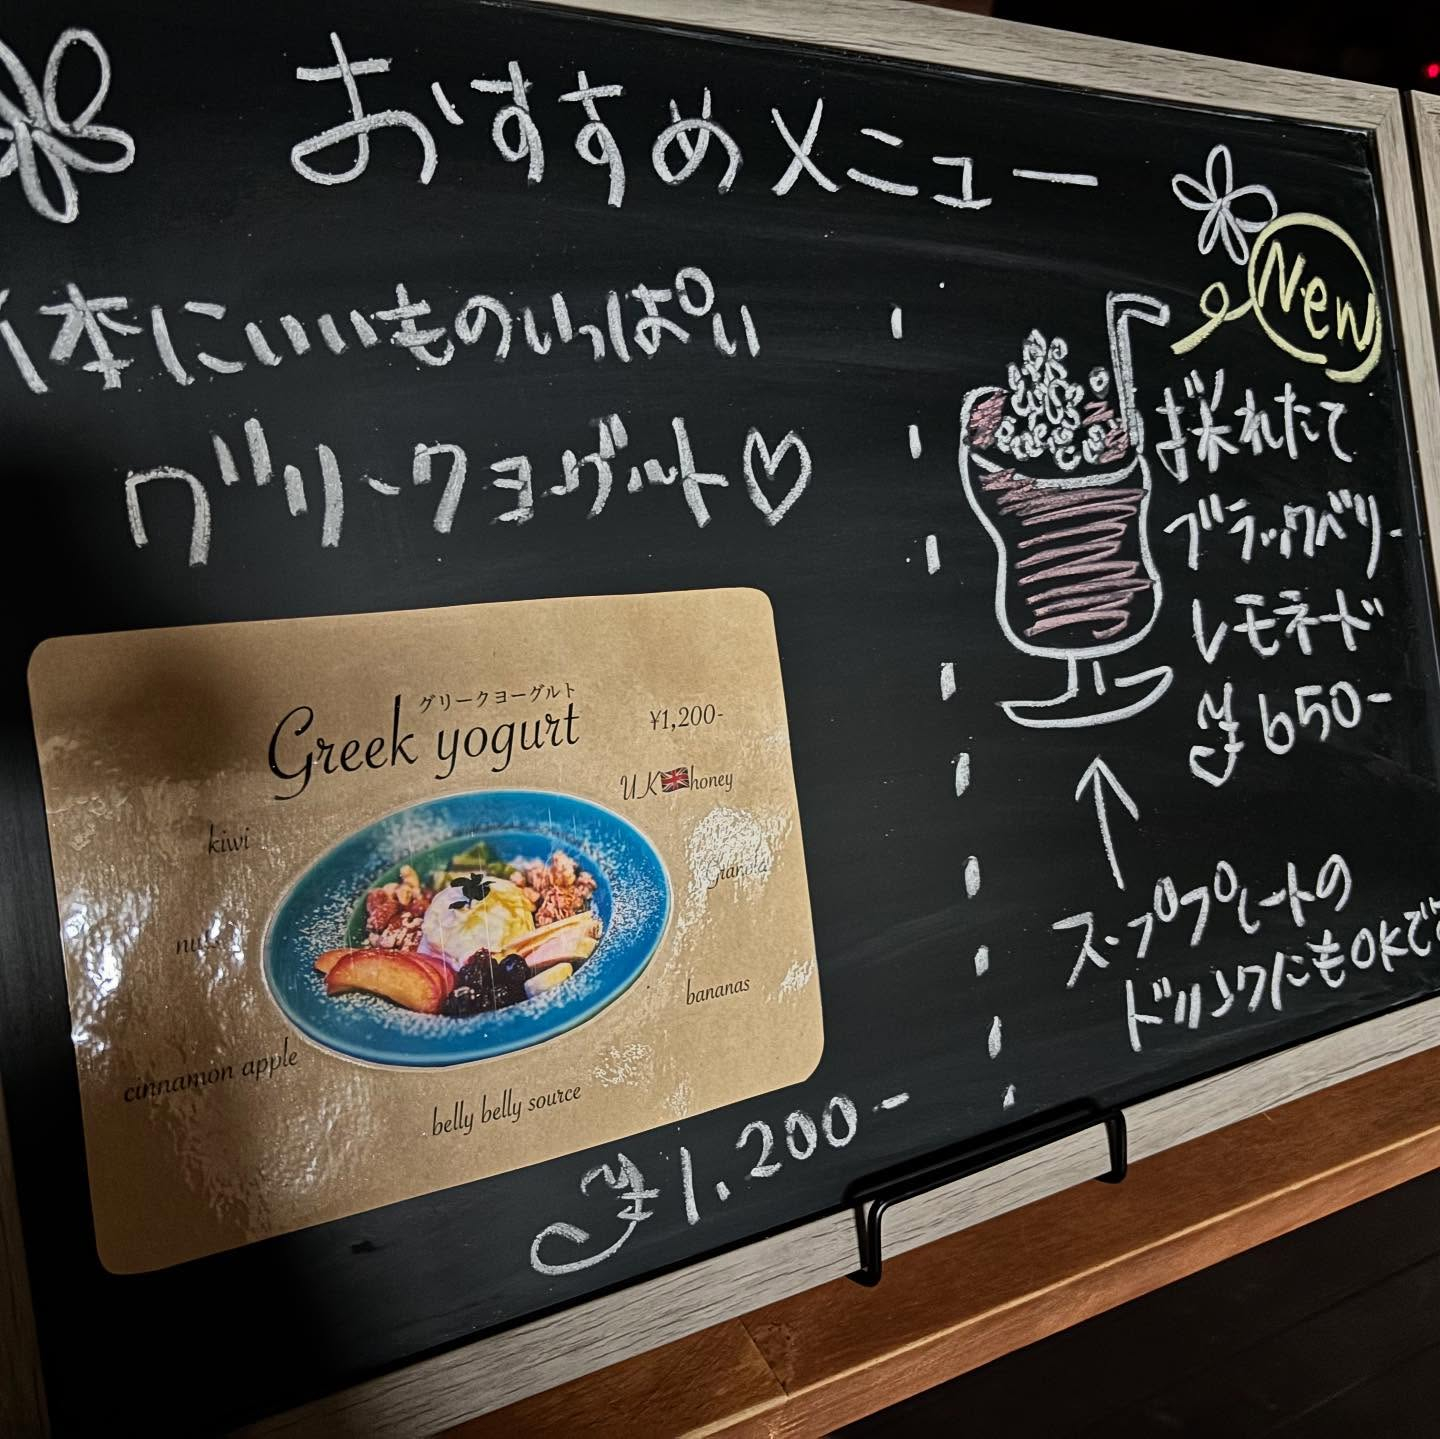 おすすめメニュー
体にいいものいっぱい
グリークヨーグルト♡
グリークヨーグルト
Greek yogurt
¥1,200-
UK🇬🇧honey
kiwi
bananas
cinnamon apple
belly belly source
¥1,200-
New
お採れたて
ブラックベリー
レモネード
¥650-
↑
スーププレートの
ドリンクにもOKです